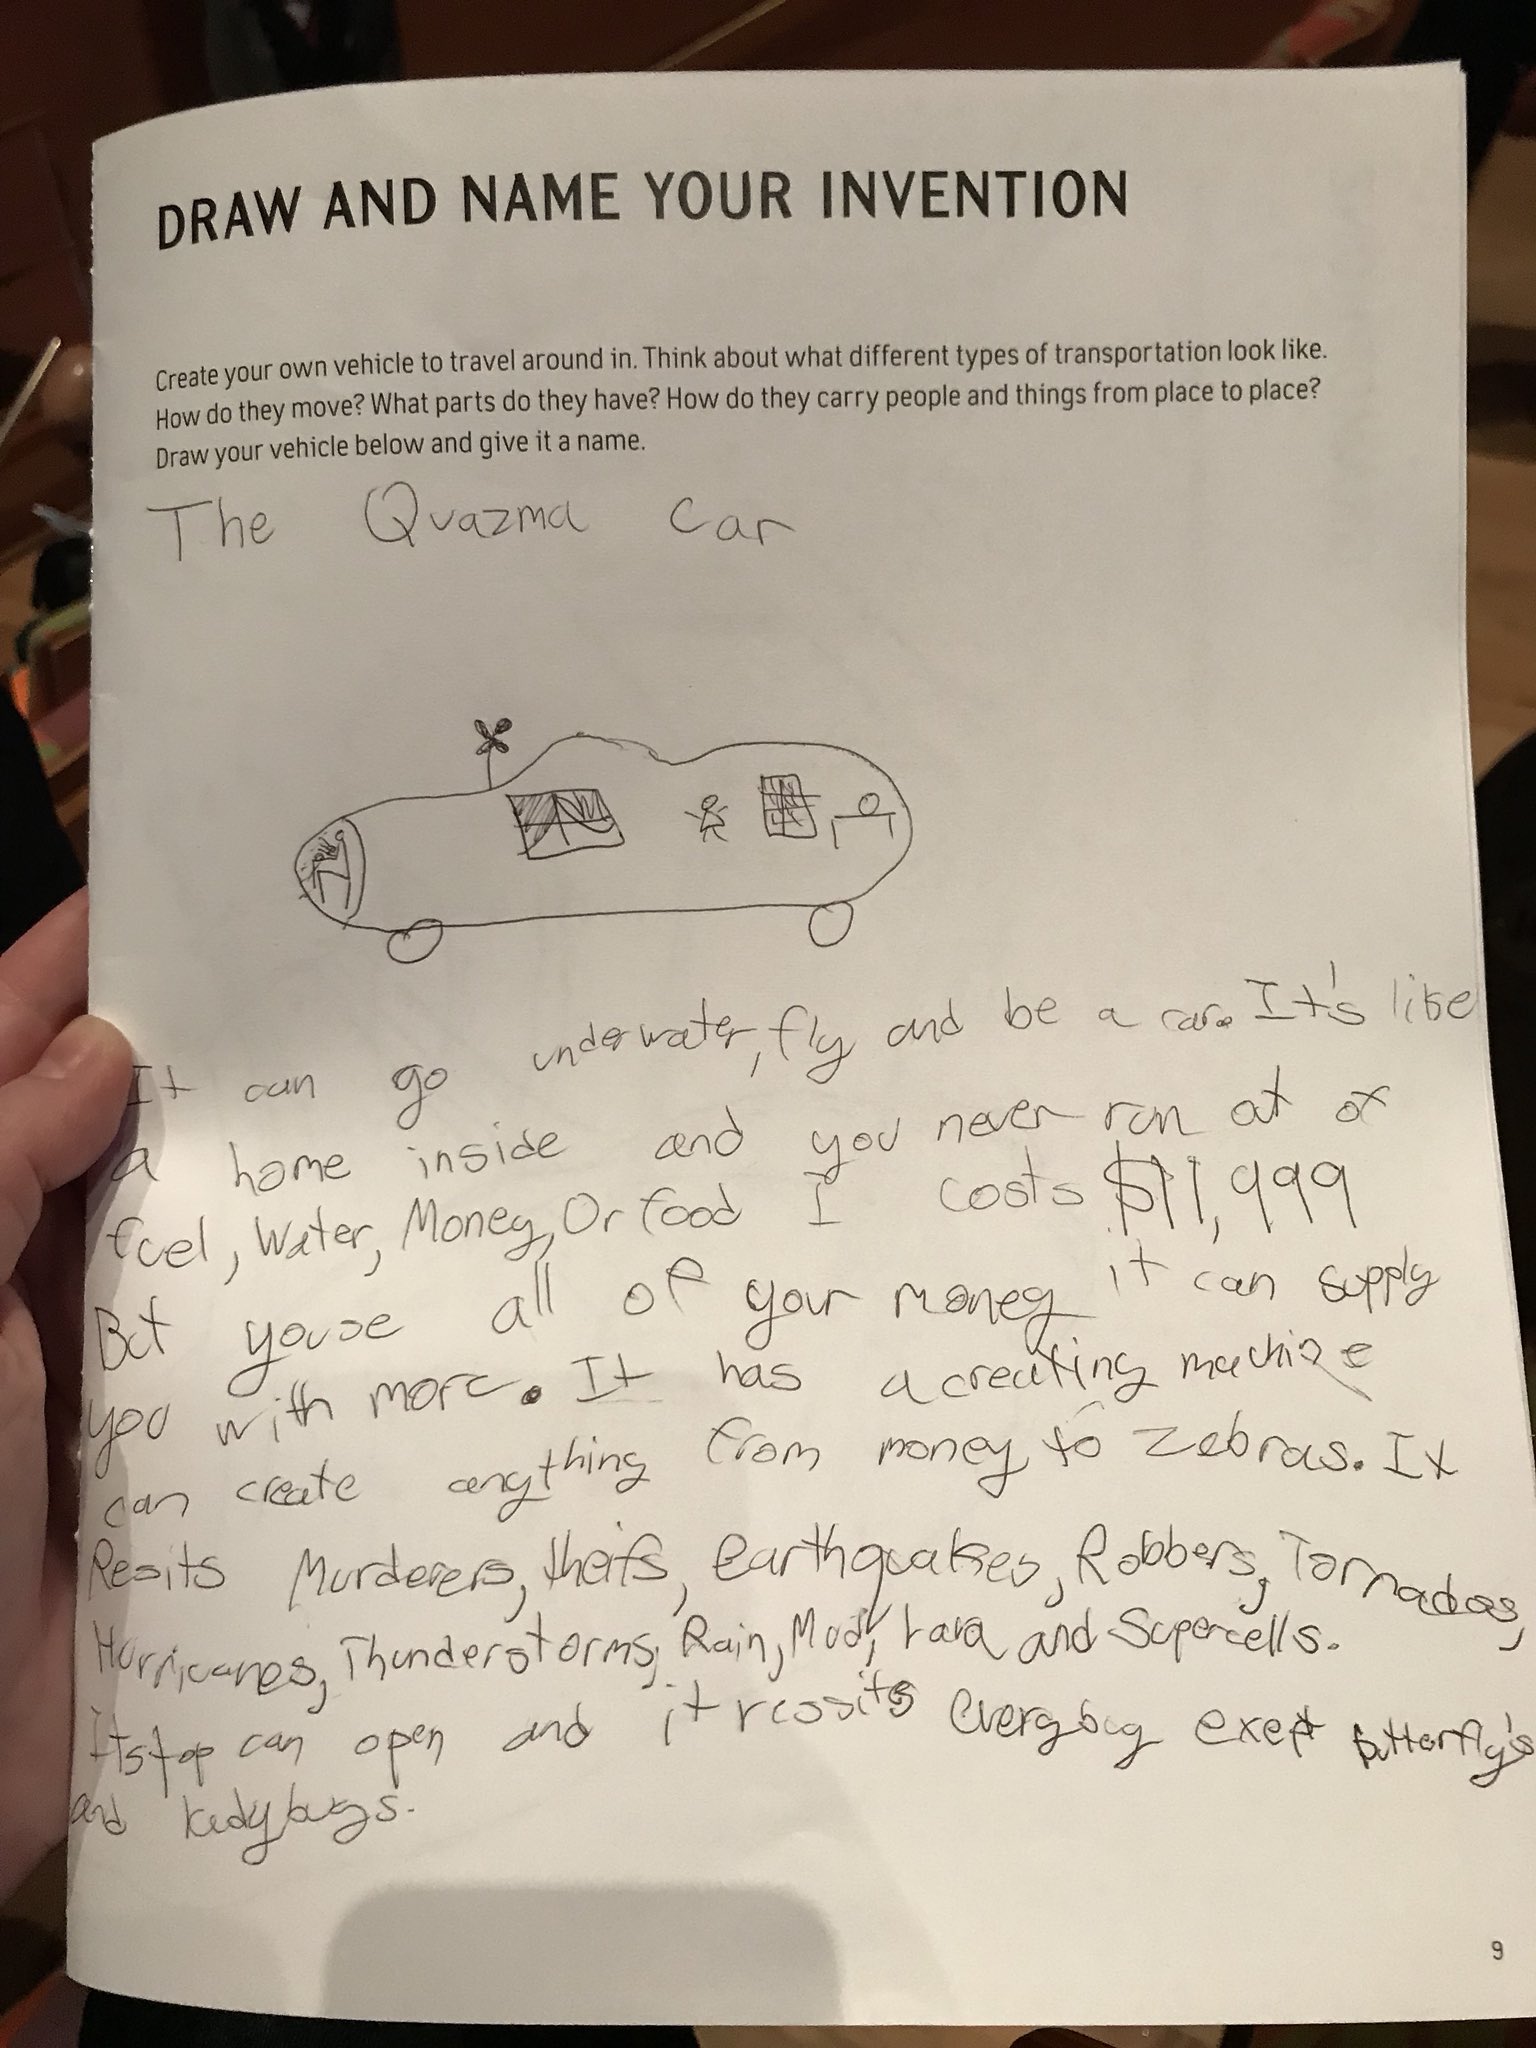 DRAW AND NAME YOUR INVENTION
Create your own vehicle to travel around in. Think about what different types of transportation look like.
How do they move? What parts do they have? How do they carry people and things from place to place?
Draw your vehicle below and give it a name.
The Quazma Car
It can go underwater, fly and be a car. It's like
a home inside and you never run at of
fuel, Water, Money, Or food I costs $11,999
But youse all of your money it can supply
you with more. It has a creating machine
can create anything from money to zebras. It
Resits Murderers, theifs, earthquakes, Robbers, Tornados,
Hurricanes, Thunderstorms, Rain, Mud, Lava and Supercells.
Its top can open and it ressits everybug exept butterfly's
and ladybugs.
9